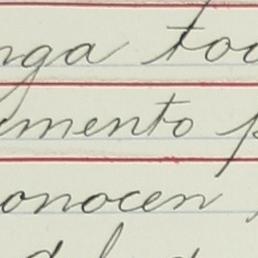 nga too
mento p
onocen